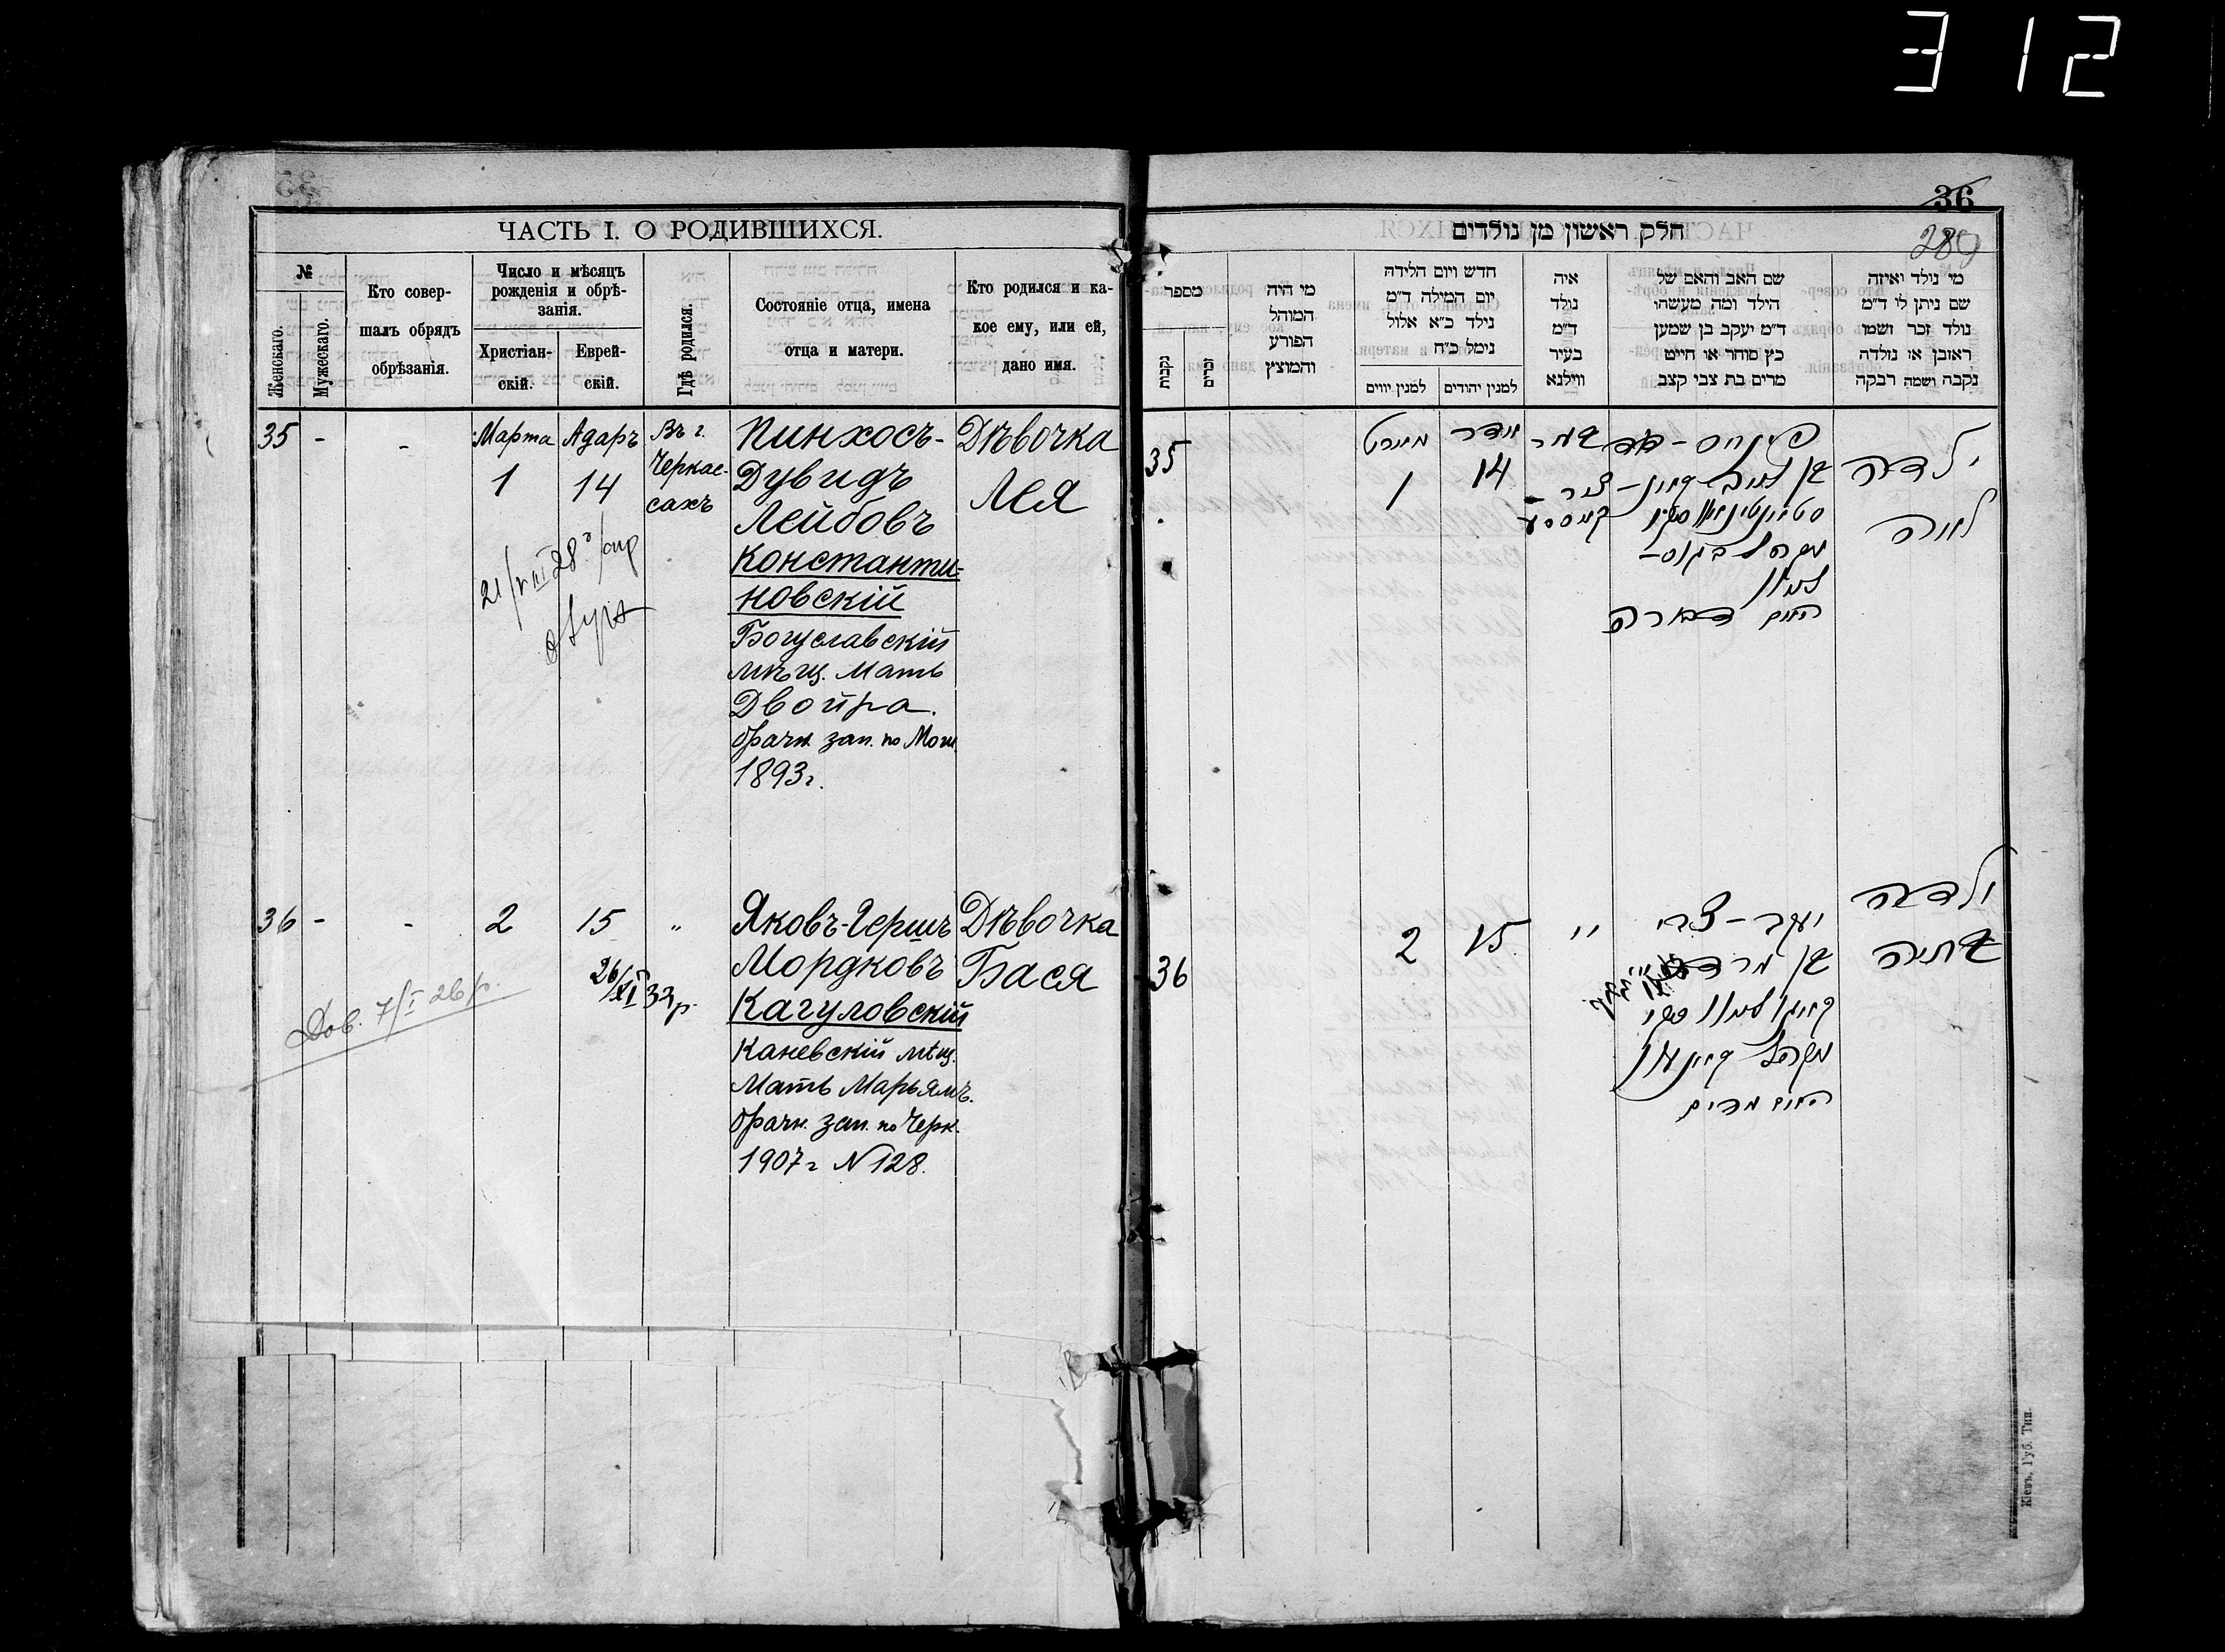 312
ЧАСТЬ I. О РОДИВШИХСЯ.
№
Женскаго.
Мужескаго.
Кто совер-
шалъ обрядъ
обрѣзанія.
Число и мѣсяцъ
рожденія и обрѣ-
занія.
Христіан-
скій.
Еврей-
скій.
Гдѣ родился.
Состояніе отца, имена
отца и матери.
Кто родился и ка-
кое ему, или ей,
дано имя.
35 - - Марта Адаръ Въ г. Пинхосъ- Дѣвочка
1 14 Черкас- Дувидъ Лея
сахъ Лейбовъ
Константи=
новскій
Богуславскій
мѣщ. Мать
Двойра.
брачн. зап. по Мош.
1893г.
21/VIII 28
36 - - 2 15 " Яковъ-Гершъ Дѣвочка
Мордковъ Бася
Кагуловскій
Каневскій мѣщ.
Мать Марьямъ.
брачн. зап. по Черк.
1907г N 128.
26/XI 33 р.
Дов. 7/I 26 р.
36
289
חלק ראשון מן נולדים
מי נולד ואיזה
שם ניתן לו ד״מ
נולד זכר ושמו
ראובן או נולדה
נקבה ושמה רבקה
שם האב והאם של
הילד ומה מעשהו
ד״מ יעקב בן שמען
כץ סוחר או חייט
מרים בת צבי קצב
איה
נולד
ד״מ
בעיר
ווילנא
חדש ויום הלידה
יום המילה ד״מ
נילד כ״א אלול
נימל כ״ח
למנין יהודים
למנין יווים
מי היה
המוהל
הפורע
והמוצץ
מספר
זכרים
נקבות
ילדה
לאה
פינחס-דוד
בן לייב
האם דבורה
אדר
14
מארט
1
35
ילדה
בתיה
יעקב-צבי
בן מרדכי
האם מרים
"
15
2
36
Кіевъ. Губ. Тип.